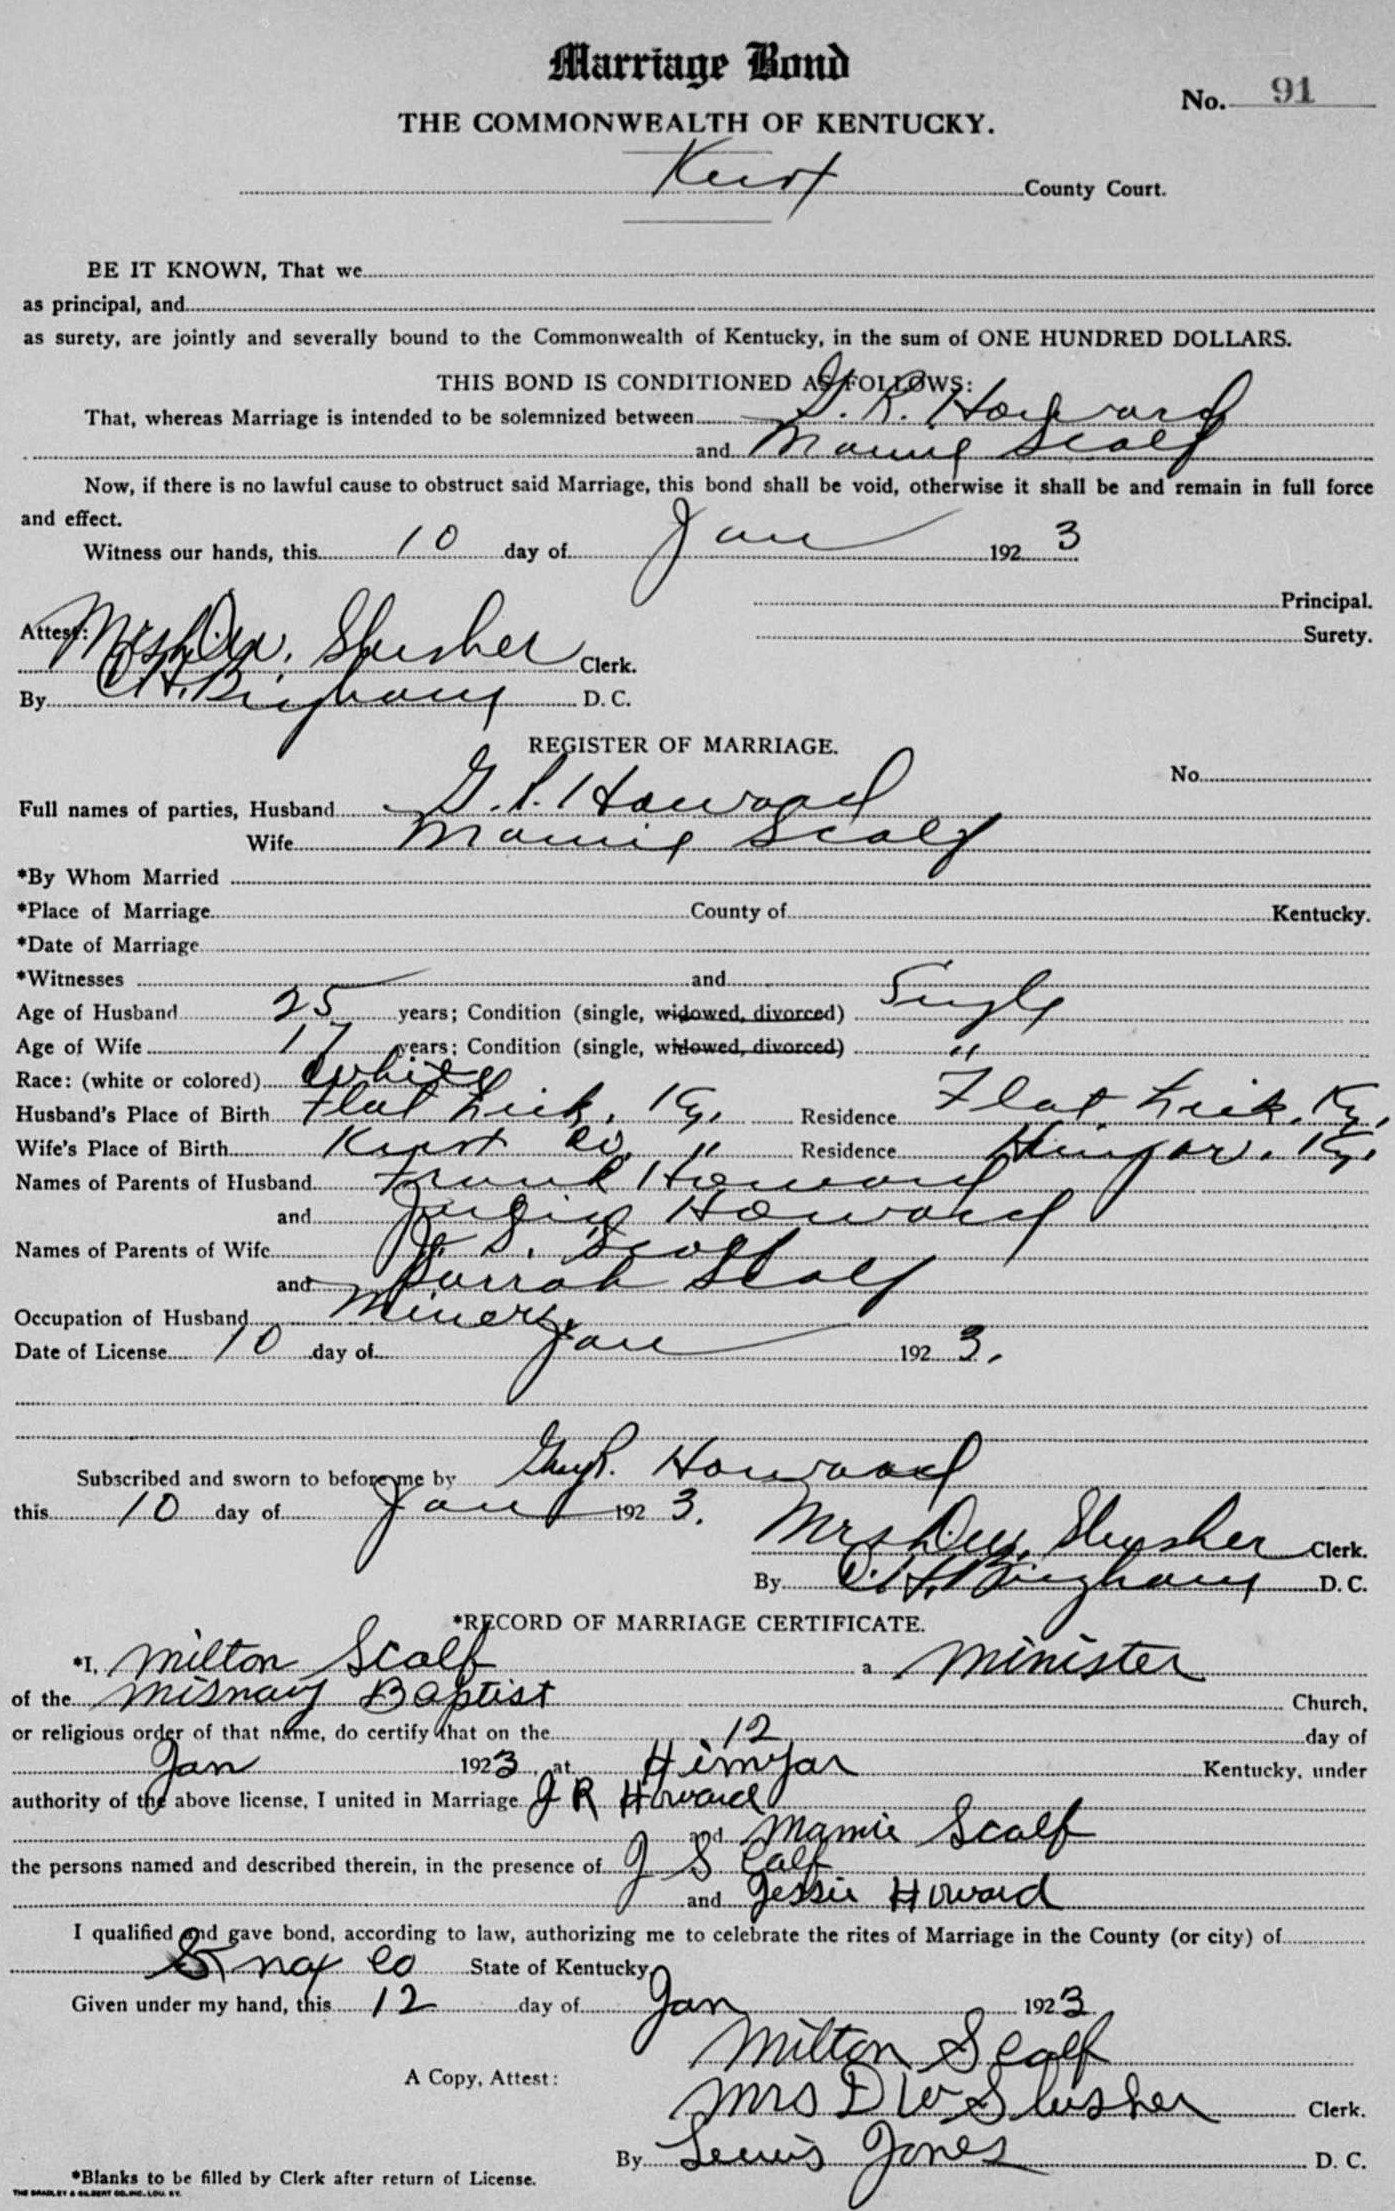 Marriage Bond
No. 91
THE COMMONWEALTH OF KENTUCKY.
Knox County Court.
BE IT KNOWN, That we
as principal, and
as surety, are jointly and severally bound to the Commonwealth of Kentucky, in the sum of ONE HUNDRED DOLLARS.
THIS BOND IS CONDITIONED AS FOLLOWS:
That, whereas Marriage is intended to be solemnized between G. R. Howard
and Mamie Scalf
Now, if there is no lawful cause to obstruct said Marriage, this bond shall be void, otherwise it shall be and remain in full force
and effect.
Witness our hands, this 10 day of Jan 1923
Principal.
Surety.
Attest: Mrs. D.W. Slusher Clerk.
By C.H. Bingham D. C.
REGISTER OF MARRIAGE.
No.
Full names of parties, Husband G. R. Howard
Wife Mamie Scalf
*By Whom Married
*Place of Marriage County of Kentucky.
*Date of Marriage
*Witnesses and
Age of Husband 25 years; Condition (single, widowed, divorced) Single
Age of Wife 17 years; Condition (single, widowed, divorced) "
Race: (white or colored) White
Husband's Place of Birth Flat Lick, Ky. Residence Flat Lick, Ky.
Wife's Place of Birth Knox Co. " Residence Himyar, Ky.
Names of Parents of Husband Frank Howard
and Howard
Names of Parents of Wife J. S. Scalf
and Surrah Scalf
Occupation of Husband Miner
Date of License 10 day of Jan 1923.
Subscribed and sworn to before me by Guy R. Howard
this 10 day of Jan 1923.
Mrs. D.W. Slusher Clerk.
By C.H. Bingham D. C.
*RECORD OF MARRIAGE CERTIFICATE.
*I, Milton Scalf a Minister
of the Misnary Baptist Church,
or religious order of that name, do certify that on the 12 day of
Jan 1923, at Himyar Kentucky, under
authority of the above license, I united in Marriage J R Howard
and Mamie Scalf
the persons named and described therein, in the presence of J Scalf
and Jessie Howard
I qualified and gave bond, according to law, authorizing me to celebrate the rites of Marriage in the County (or city) of
Knox Co State of Kentucky
Given under my hand, this 12 day of Jan 1923
Milton Scalf
A Copy, Attest:
Mrs D W Slusher Clerk.
By Lewis Jones D. C.
*Blanks to be filled by Clerk after return of License.
THE BRADLEY & GILBERT CO. INC. LOU. KY.